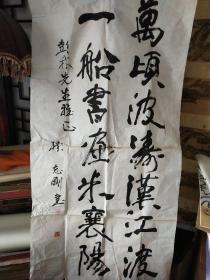 萬頃波濤漢江渡
一船書畫米襄陽
彭林先生雅正